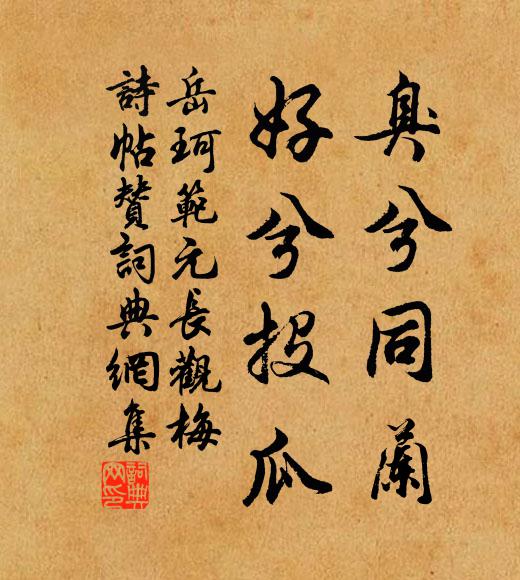 臭兮同蘭
好兮投瓜
岳珂範元長觀梅
詩帖贊詞典網集
詞典網印